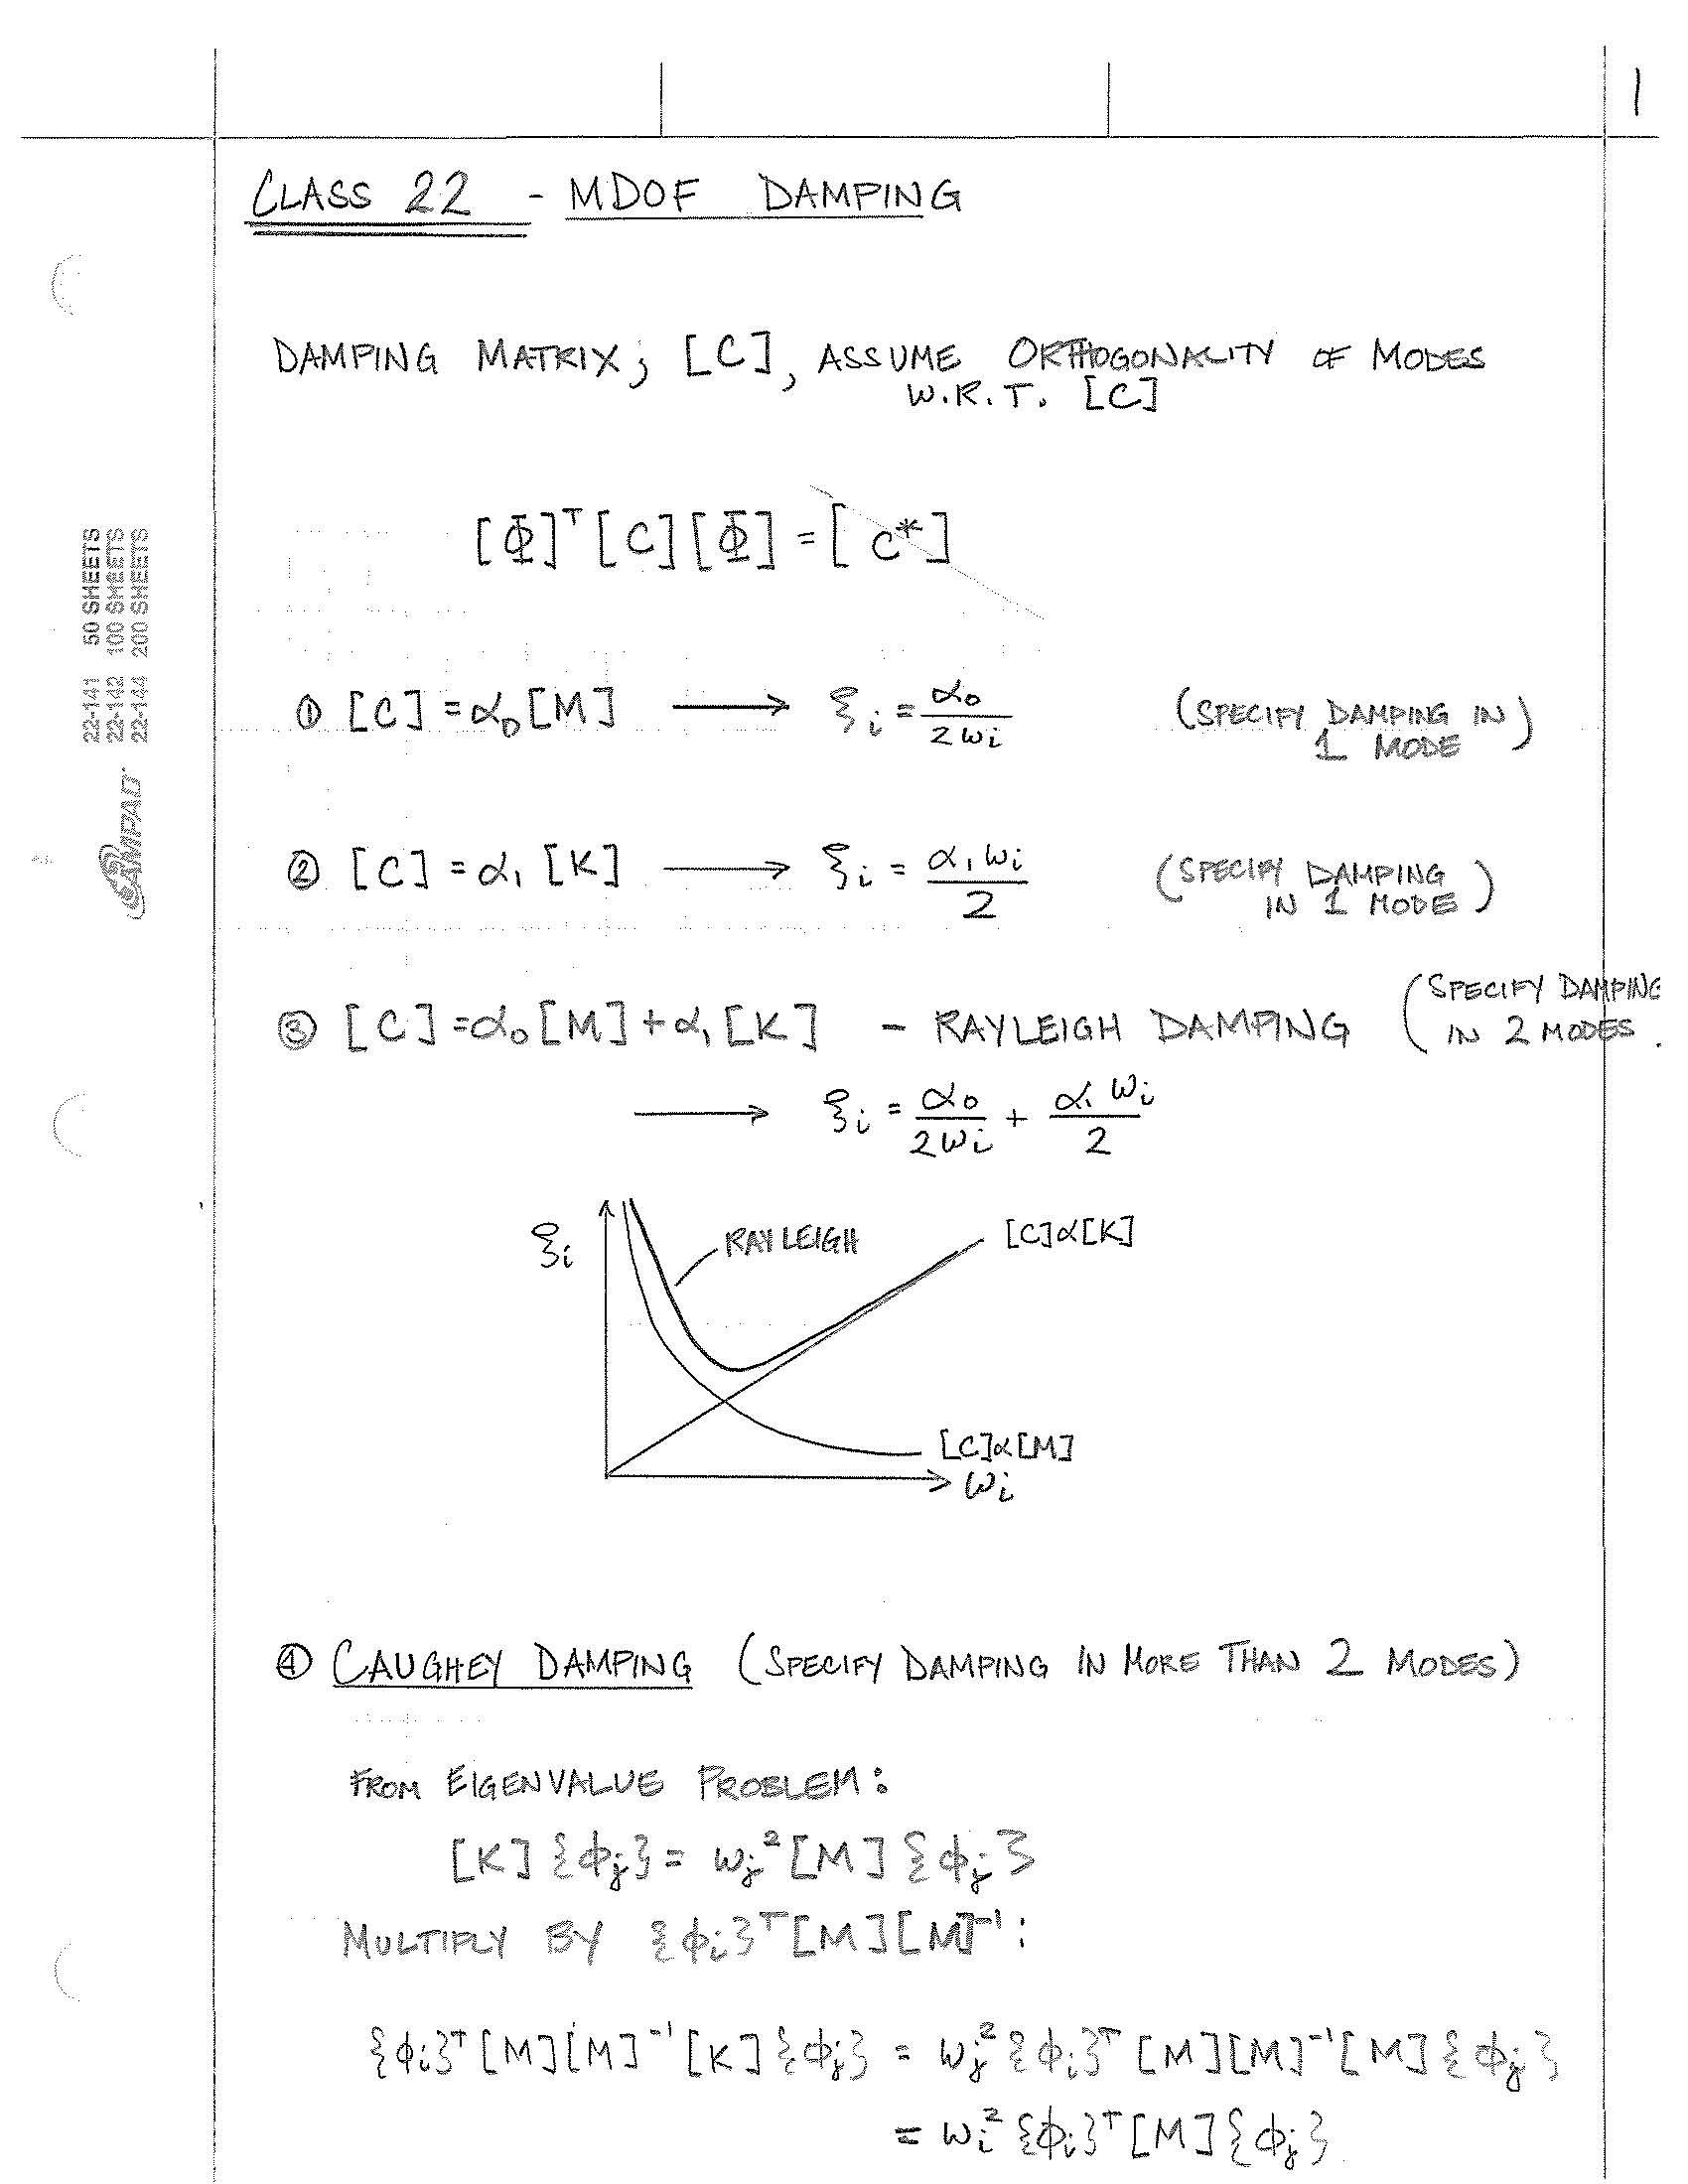 1
CLASS 22 - MDOF DAMPING
DAMPING MATRIX; [C], ASSUME ORTHOGONALITY OF MODES
W.R.T. [C]
[Φ]ᵀ[C][Φ] = [c*]
50 SHEETS
100 SHEETS
200 SHEETS
22-141
22-142
22-144
AMPAD
① [C] = α₀[M] ⟶ ξᵢ = α₀/2ωᵢ (SPECIFY DAMPING IN
1 MODE)
② [C] = α₁[K] ⟶ ξᵢ = α₁ωᵢ/2 (SPECIFY DAMPING
IN 1 MODE)
③ [C] = α₀[M] + α₁[K] - RAYLEIGH DAMPING (SPECIFY DAMPING
IN 2 MODES.
⟶ ξᵢ = α₀/2ωᵢ + α₁ωᵢ/2
ξᵢ
RAYLEIGH
[C]α[K]
[C]α[M]
ωᵢ
④ CAUGHEY DAMPING (SPECIFY DAMPING IN MORE THAN 2 MODES)
FROM EIGENVALUE PROBLEM:
[K]{ϕⱼ} = ωⱼ²[M]{ϕⱼ}
MULTIPLY BY {ϕᵢ}ᵀ[M][M]⁻¹:
{ϕᵢ}ᵀ[M][M]⁻¹[K]{ϕⱼ} = ωⱼ²{ϕᵢ}ᵀ[M][M]⁻¹[M]{ϕⱼ}
= ωᵢ²{ϕᵢ}ᵀ[M]{ϕⱼ}